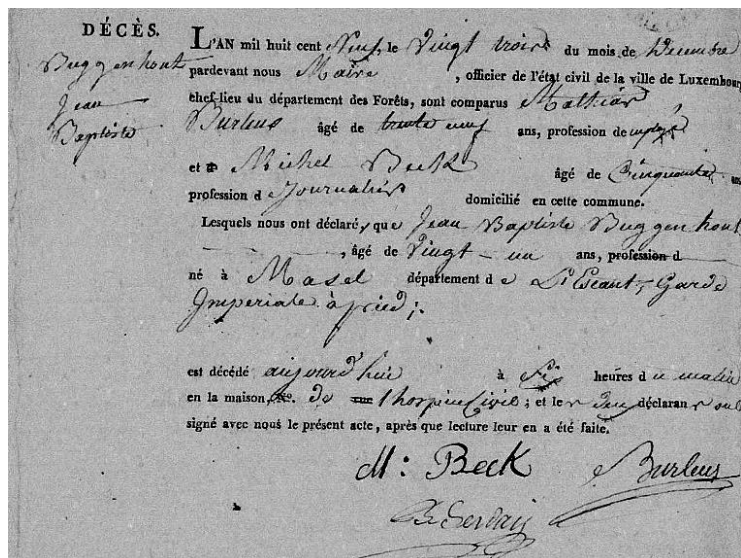 DÉCÈS.
Buggenhout
Jean
Baptiste
L'AN mil huit cent Neuf, le Vingt trois du mois de Décembre
pardevant nous Maire, officier de l'état civil de la ville de Luxembourg
chef-lieu du département des Forêts, sont comparus Mathias
Burleus âgé de trente neuf ans, profession d employé
et Michel Beck âgé de Cinquante ans
profession d e Journalier domicilié en cette commune.
Lesquels nous ont déclaré, que Jean Baptiste Buggenhout
, âgé de Vingt - un ans, profession d
né à Masel département d e L'Escaut, Garde
Imperiale à pied;
est décédé aujourd'hui à Six heures d u matin
en la maison, No. de l'hospice Civil; et le s deux déclaran s ont
signé avec nous le présent acte, après que lecture leur en a été faite.
M: Beck Burleus